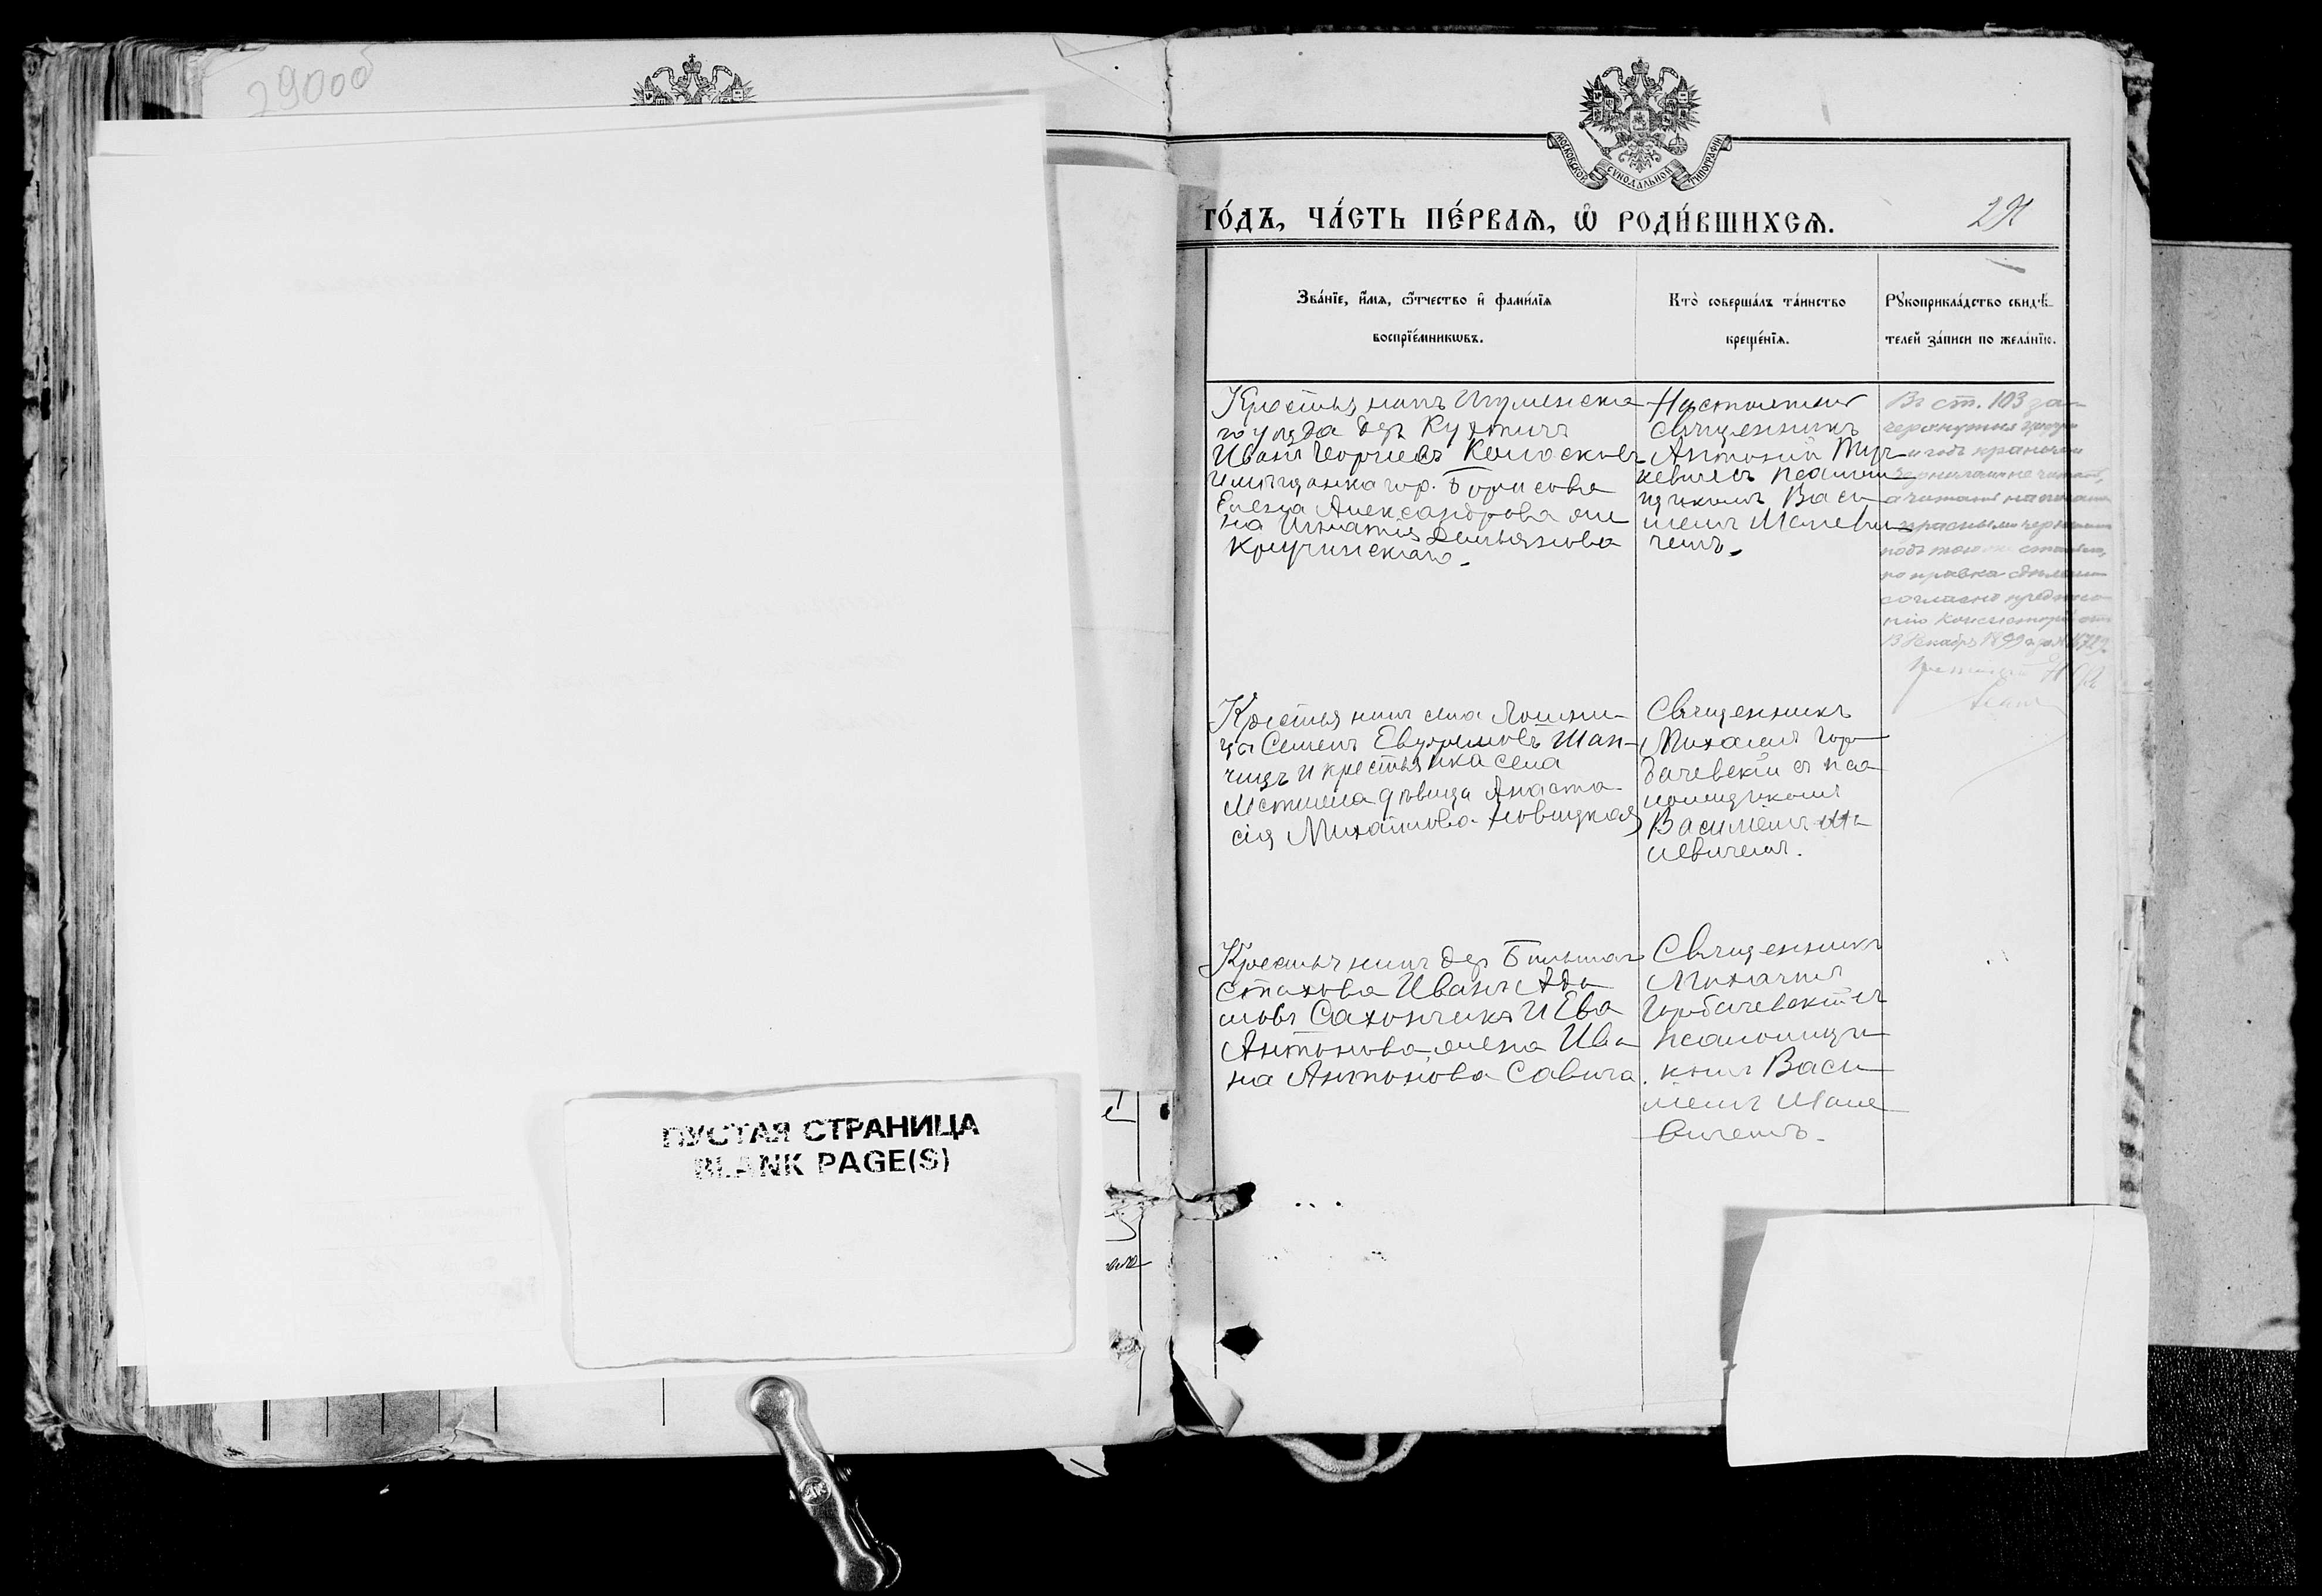 290об
МОСКОВСКОЙ СѴНОДАЛЬНОЙ ТИПОГРАФІИ
ГО́ДЪ, ЧА́СТЬ ПЕ́РВАЯ, Ѿ РОДИ́ВШИХСЯ.
291
Зва́нїе, и́мя, ѻ҆́тчество и҆ фами́лїя
воспрїе́мникѡвъ.
Кто̀ соверша́лъ та́инство
креще́нїя.
Рꙋкоприкла́дство свидѣ́-
телей за́писи по жела́нїю.
Крестьянинъ Игуменска
го уѣзда дер.
Иванъ Георгіевъ Колосковъ
и мѣщанка гор. Борисова
Елена Александрова жена
на Игнатія Демьянова
Кручинскаго.
Настоятель
священникъ
Антоній Тур-
кевичъ съ псаломщ
щикомъ Васи
ліемъ Малеви
чемъ.
Въ ст. 103 за-
черкнутыя
и годъ красными
чернилами не читать,
а читать
красными чернилами
подъ тою же статьею,
поправка сдѣлана
согласно предписа
нію Консисторіи отъ
13 Декабря 1899 г. за №
Крестьянинъ села Лошни-
ца Семенъ Евфремовъ Шан-
чицъ и крестьянка села
Мстижа дѣвица Анаста-
сія Михайлова Новицкая
Священникъ
Михаилъ Гор-
бачевскій съ пса
ломщикомъ
Василіемъ Ма
левичемъ.
Крестьянинъ дер. Большаго
Стахова Иванъ Ада
мовъ Сахончикъ и Ева
Антонова, жена Ива
на Антонова Савича.
Священникъ
Михаилъ
Горбачевскій съ
псаломщи
комъ Васи
ліемъ Мале
вичемъ.
ПУСТАЯ СТРАНИЦА
BLANK PAGE(S)